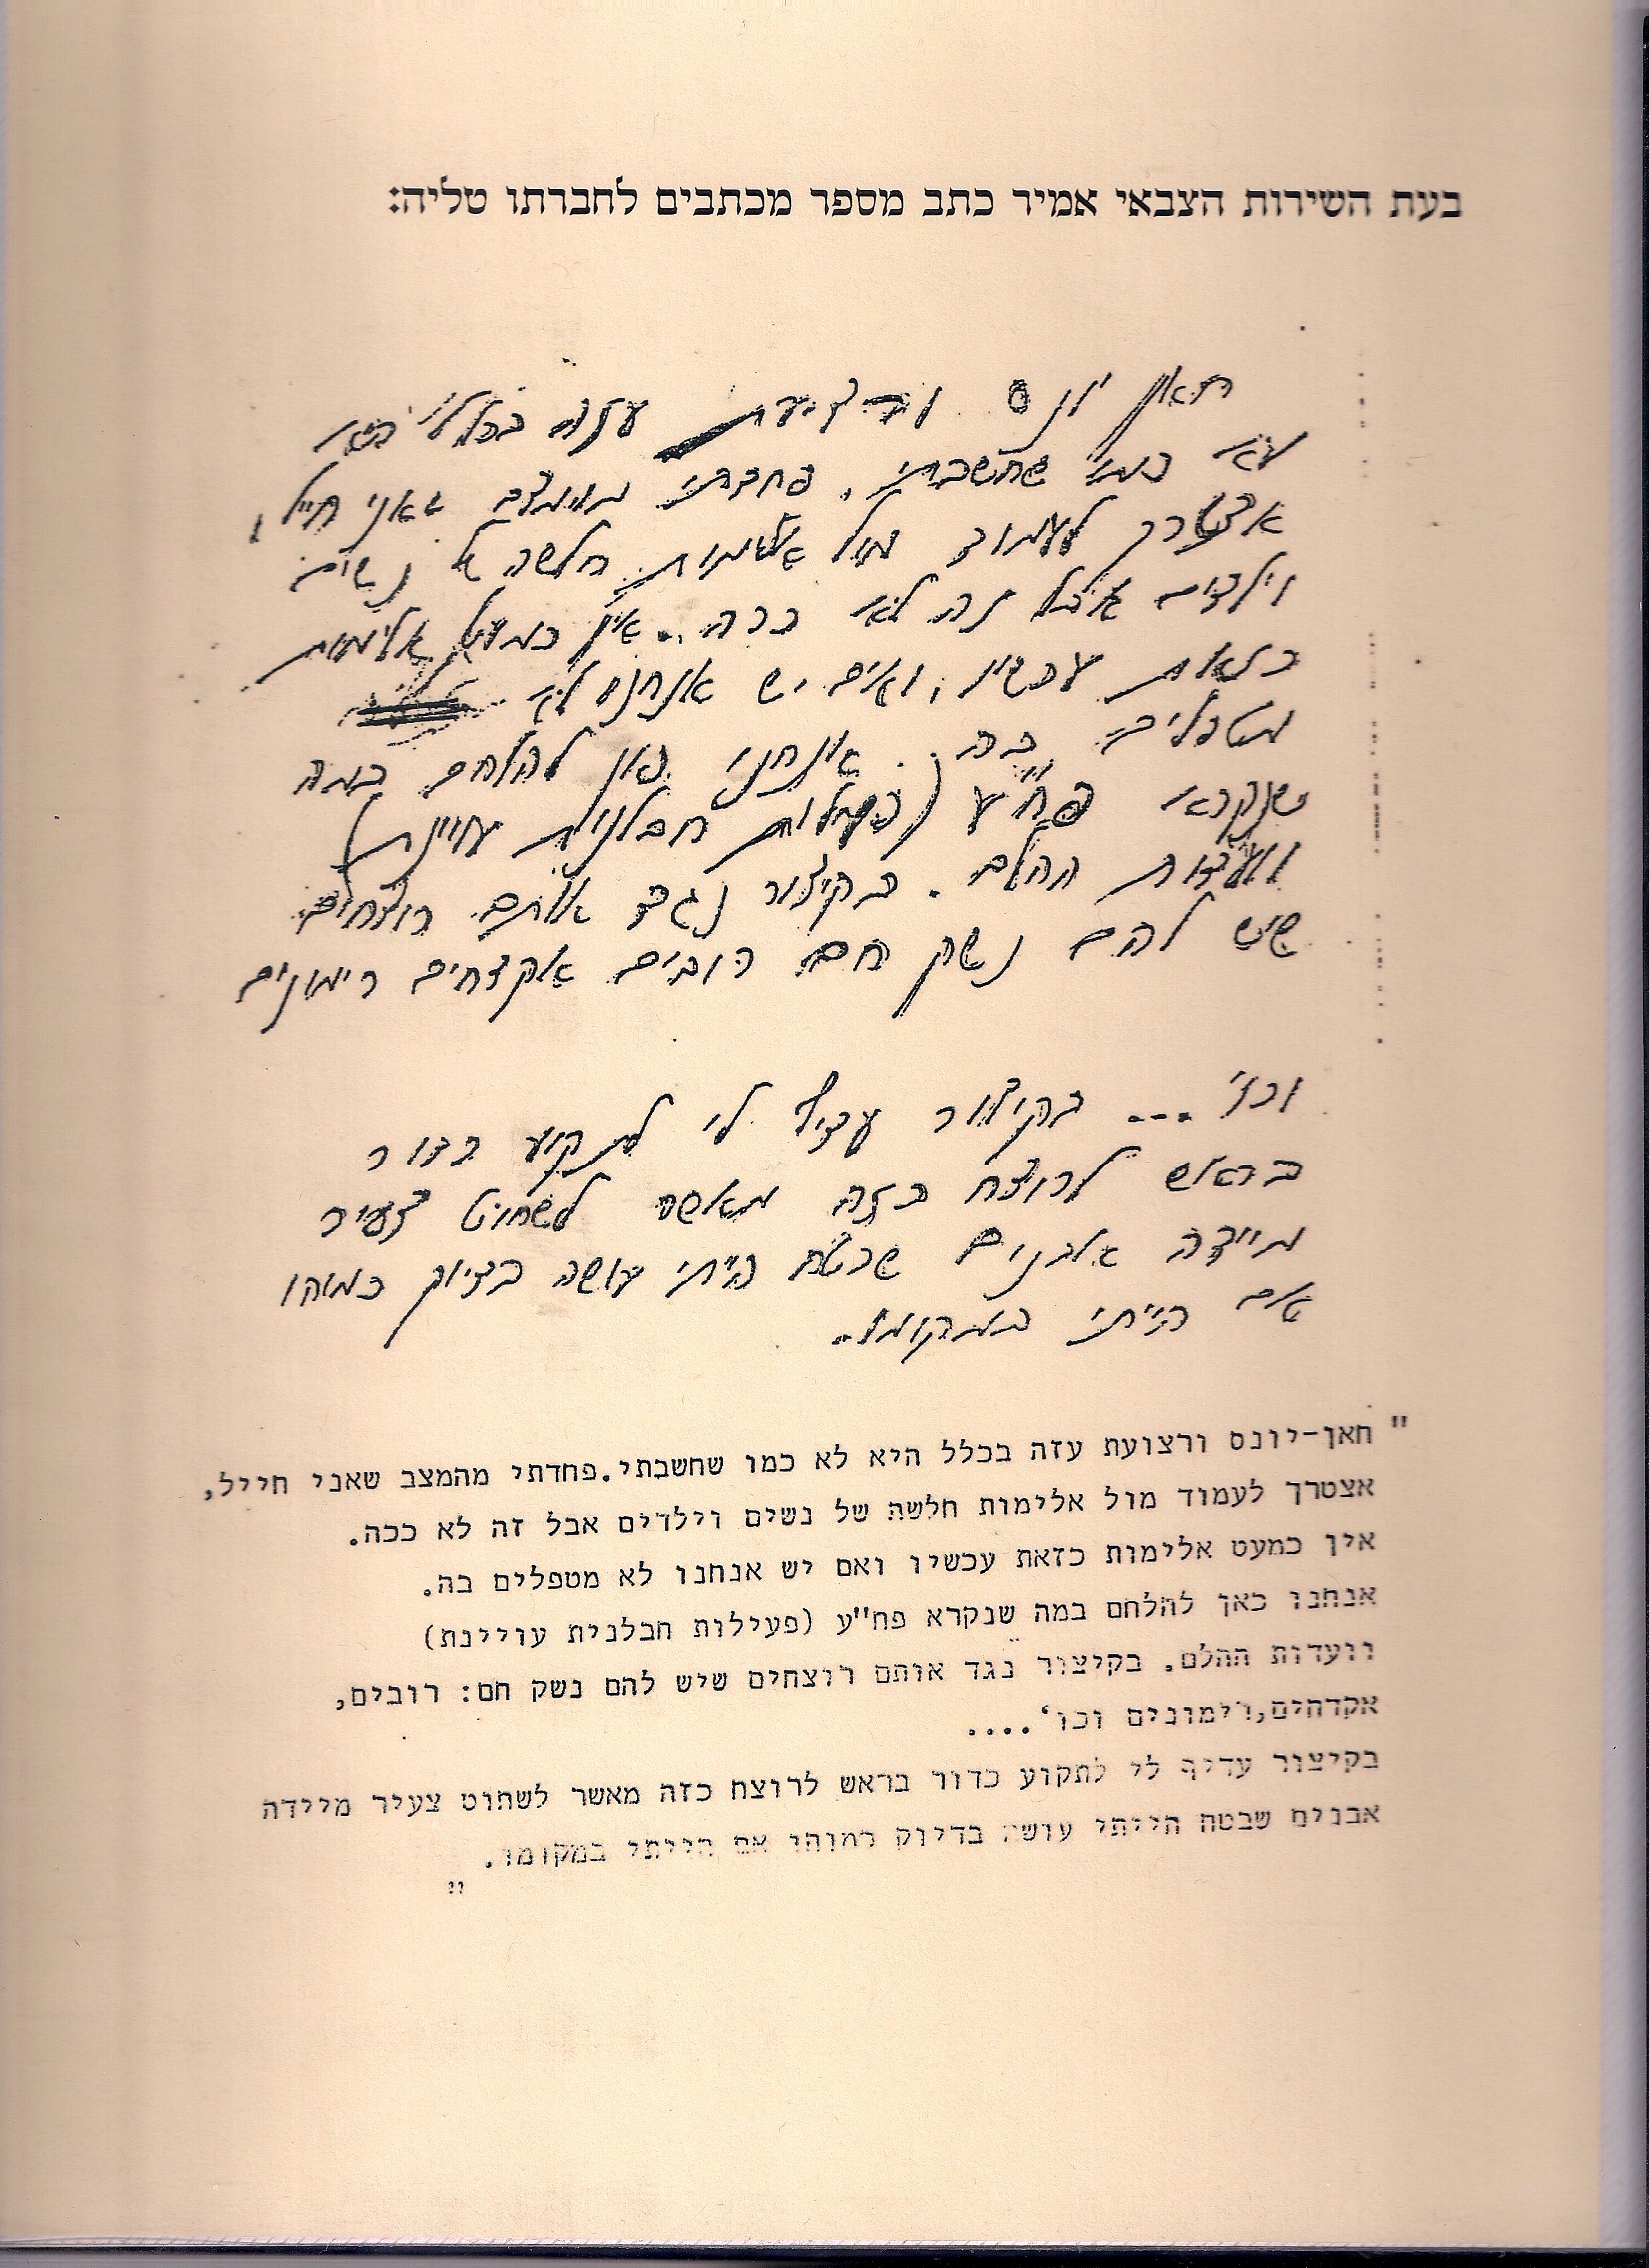 בעת השירות הצבאי אמיר כתב מספר מכתבים לחברתו טליה:
חאן יונס ורצועת עזה בכלל היא
לא כמו שחשבתי. פחדתי מהמצב שאני חייל,
אצטרך לעמוד מול אלימות חלשה של נשים
וילדים אבל זה לא ככה. אין כמעט אלימות
כזאת עכשיו, ואם יש אנחנו לא
מטפלים בה. אנחנו כאן להלחם במה
שנקרא פח"ע (פעילות חבלנית עויינת)
וועדות ההלם. בקיצור נגד אותם רוצחים
שיש להם נשק חם רובים אקדחים רימונים
וכו' ... בקיצור עדיף לי לתקוע כדור
בראש לרוצח כזה מאשר לשחוט צעיר
מיידה אבנים שבטח הייתי עושה בדיוק כמוהו
אם הייתי במקומו.
"חאן-יונס ורצועת עזה בכלל היא לא כמו שחשבתי.פחדתי מהמצב שאני חייל,
אצטרך לעמוד מול אלימות חלשה של נשים וילדים אבל זה לא ככה.
אין כמעט אלימות כזאת עכשיו ואם יש אנחנו לא מטפלים בה.
אנחנו כאן להלחם במה שנקרא פח"ע (פעילות חבלנית עויינת)
וועדות ההלם. בקיצור נגד אותם רוצחים שיש להם נשק חם: רובים,
אקדחים,רימונים וכו'....
בקיצור עדיף לי לתקוע כדור בראש לרוצח כזה מאשר לשחוט צעיר מיידה
אבנים שבטח הייתי עושה בדיוק כמוהו אם הייתי במקומו.
"